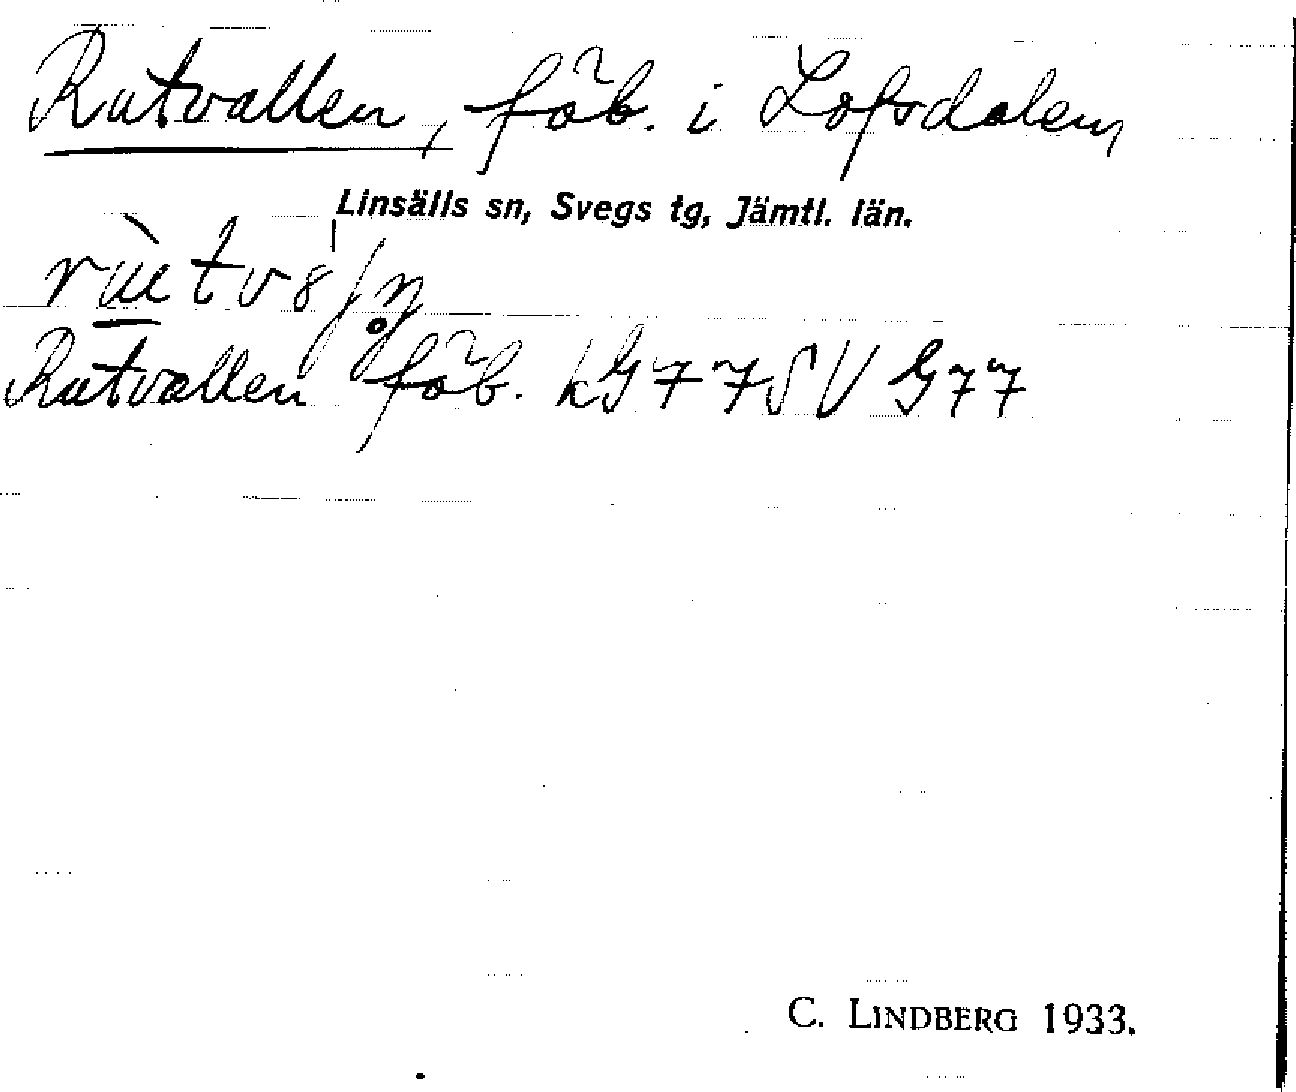 Rutvallen, fäb. i Lofsdalen,
Linsälls sn, Svegs tg, Jämtl. län.
Rutvallen fäb. kG77SV G77
C. LINDBERG 1933.